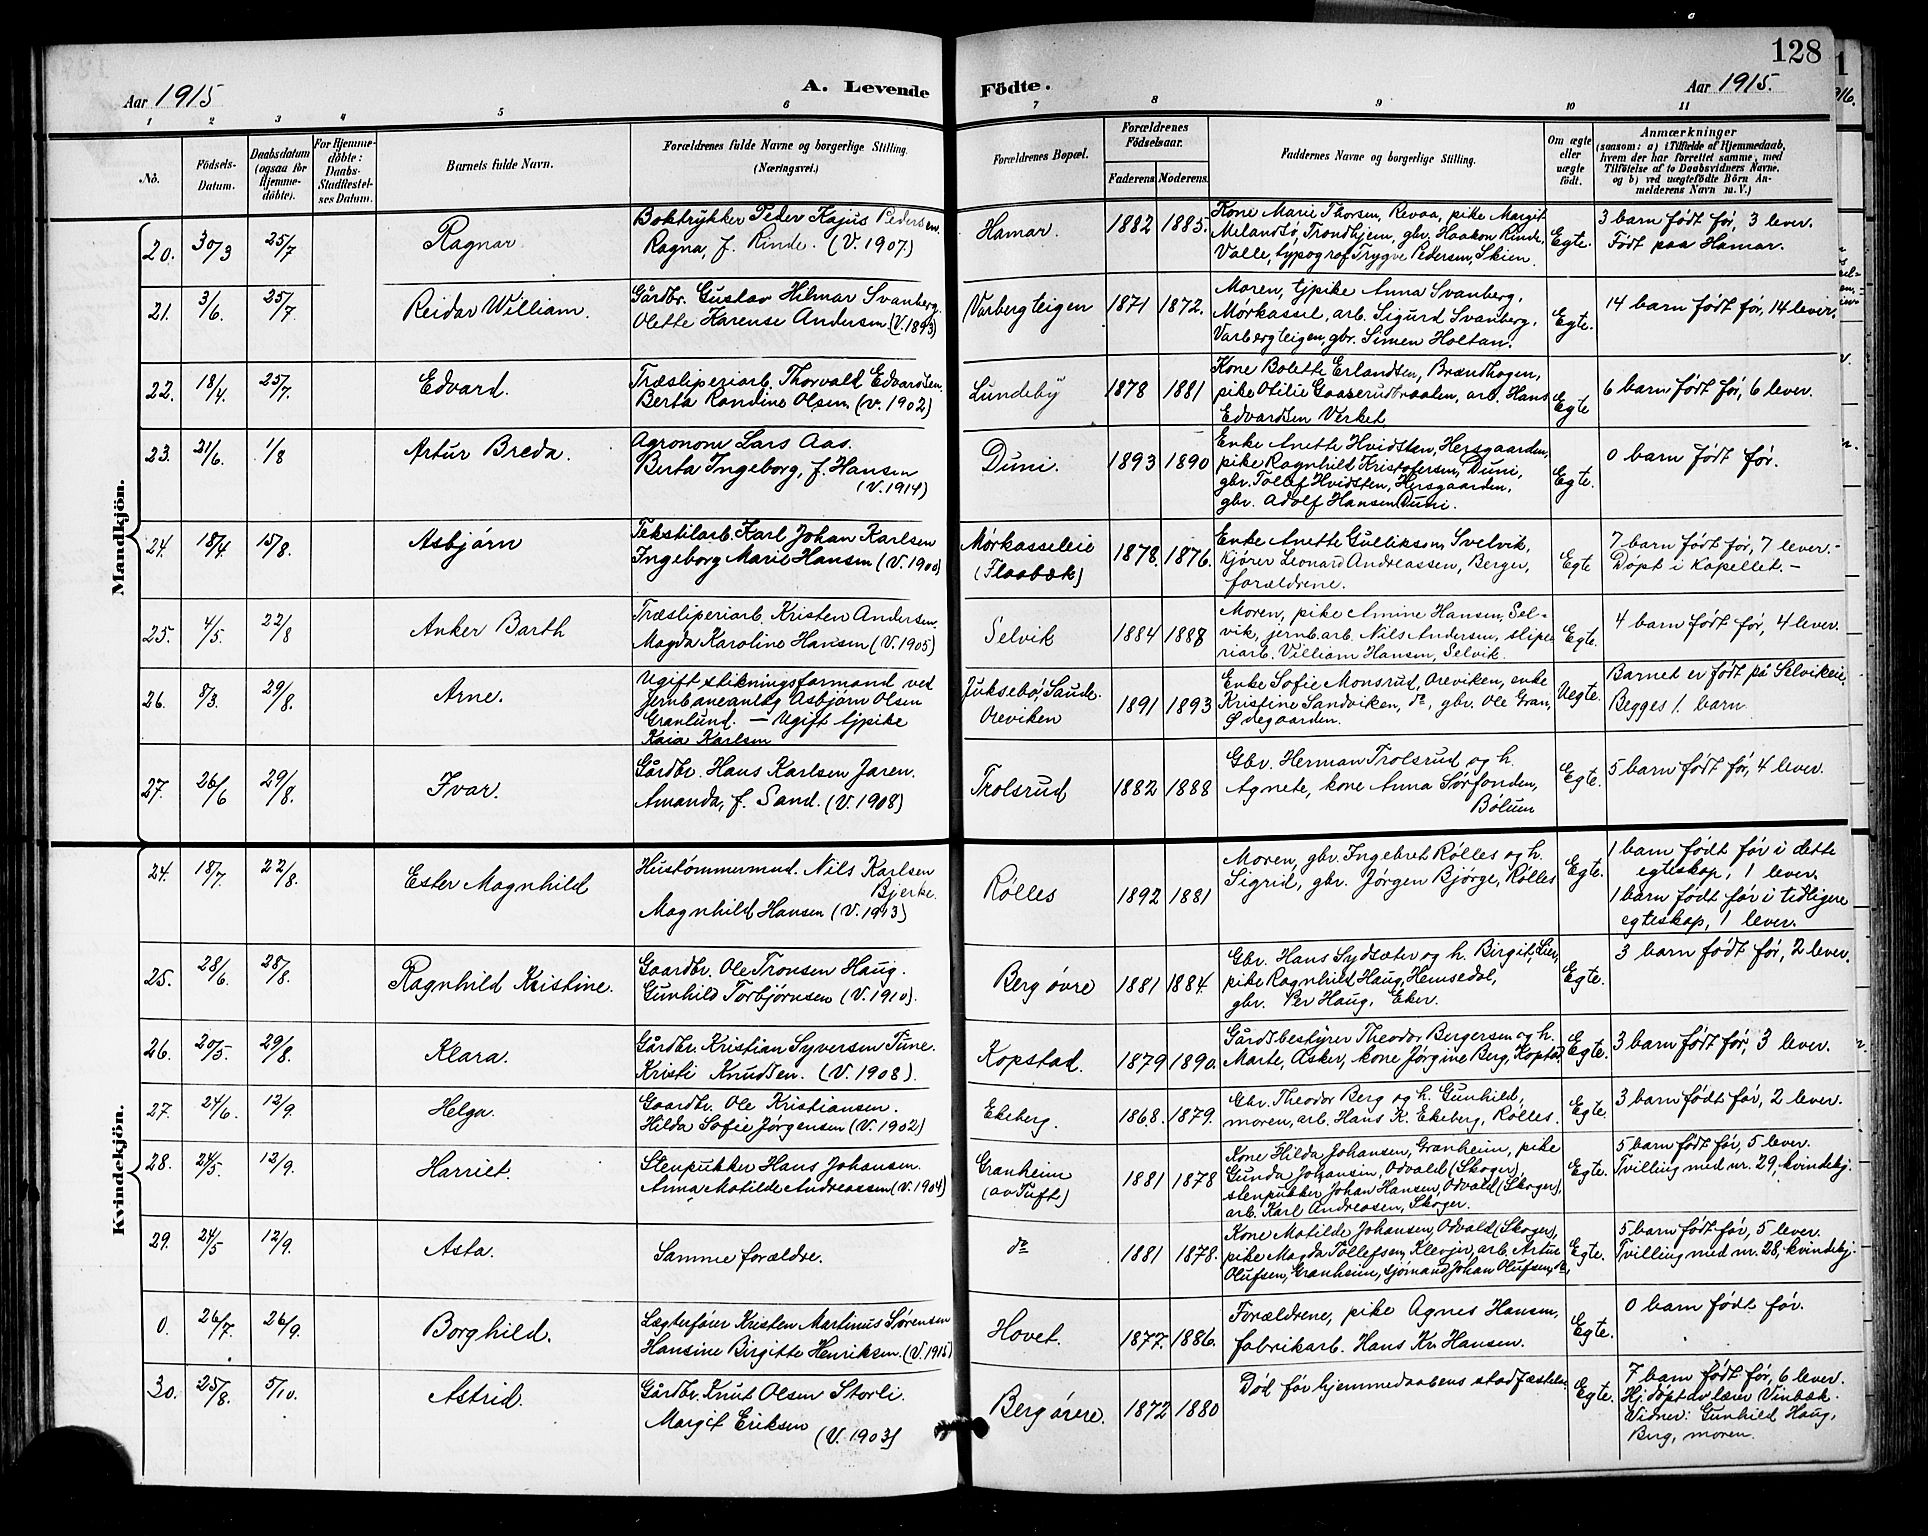 128
Aar 1915
A. Levende
Födte.
Aar 1915.
1 2 3 4 5 6 7 8 9 10 11
No.
Födsels-
Datum.
Daabsdatum
(ogsaa for
Hjemme-
döbte).
For Hjemme-
döbte:
Daabs-
Stadfæstel-
ses Datum.
Barnets fulde Navn.
Forældrenes fulde Navne og borgerlige Stilling.
(Næringsvei.)
Forældrenes Bopæl.
Forældrenes
Födselsaar.
Faderens. Moderens.
Faddernes Navne og borgerlige Stilling.
Om ægte
eller
uægte
födt.
Anmærkninger
(saasom: a) i Tilfælde af Hjemmedaab,
hvem der har forrettet samme, med
Tilföielse af to Daabsvidners Navne,
og b) ved uægtefödte Börn An-
melderens Navn m. V.)
Mandkjön.
20. 30/3 25/7 Ragnar
Boktrykker Peder Kajus Pedersen.
Ragna, f. Rinde. (V. 1907.)
Hamar. 1882 1885.
Kone Marie Thorsen, Revaa, pike Margit
Milandsø, Trondhjem, gbr. Haakon Rinde,
Valle, typograf Trygve Pedersen, Skien.
Egte.
3 barn født før, 3 lever.
Født paa Hamar.
21. 3/6. 25/7 Reidar William.
Gårdbr. Gustav Hilmar Svanberg.
Olette Harense Andersen (V. 1893)
Varbergteigen 1871 1872.
Moren, tjpike Anna Svanberg,
Mørkassel, arb. Sigurd Svanberg,
Varbergteigen, gbr. Simen Holtan.
Egte.
14 barn født før, 14 lever.
22. 18/4 25/7. Edvard.
Træsliperiarb. Thorvald Edvardsen.
Berta Randine Olsen (V. 1902)
Lundeby 1878 1881
Kone Bolette Erlandsen, Brændhagen,
pike Otilie Gaaserudbraaten, arb. Hans
Edvardsen Verket
Egte
6 barn født før, 6 lever.
23. 21/6. 1/8 Artur Breda.
Agronom Lars Aas.
Berta Ingeborg, f. Hansen
(V. 1914)
Duni. 1893 1890
Enke Anette Hvidsten, Hersgaarden,
pike Ragnhild Kristofersen, Duni,
gbr. Tollef Hvidsten, Hersgaarden,
gbr. Adolf Hansen, Duni.
Egte.
0 barn født før.
24. 18/4 15/8. Asbjørn
Tekstilarb. Karl Johan Karlsen
Ingeborg Marie Hansen (V. 1900)
Mørkasseleie
(Flaabæk) 1878. 1876.
Enke Anette Gulliksen, Svelvik,
kjører Leonard Andreassen, Berger,
forældrene.
Egte
7 barn født før, 7 lever.-
Døpt i Kapellet.-
25. 4/5. 22/8 Anker Barth
Træsliperiarb. Kristen Andersen.
Magda Karoline Hansen (V. 1905)
Selvik 1884 1888
Moren, pike Amine Hansen, Sel-
vik, jernb.arb. Nils Andersen, slipe-
riarb. Villiam Hansen, Selvik.
Egte.
4 barn født før, 4 lever.
26. 8/3. 29/8. Arne.
Ugift stikningsformand ved
Jernbaneanlæg Asbjørn Olsen
Granlund. — Ugift tjpike
Kaia Karlsen
Juksebø, Saude.
Oreviken 1891 1893
Enke Sofie Monsrud, Oreviken, enke
Kristine Sandviken, do, gbr. Ole Gran,
Ødegaarden.
Uegte.
Barnet er født på Selvikeie.
Begges 1. barn
27. 26/6 29/8. Ivar.
Gårdbr. Hans Karlsen Jaren.
Amanda, f. Sand. (V. 1908)
Trolsrud 1882 1888
Gbr. Herman Trolsrud og h.
Agnete, kone Anna Sørfonden,
Bølum
Egte.
5 barn født før, 4 lever.
Kvindekjön.
24. 18/7. 22/8. Ester Magnhild
Hustømmermnd. Nils Karlsen
Bjerke.
Magnhild Hansen (V. 1913)
Rølles 1892 1881
Moren, gbr. Ingebret Rølles og h.
Sigrid, gbr. Jørgen Bjørge, Rølles
Egte.
1 barn født før i dette
egteskap, 1 lever.
1 barn født før i tidligere
egteskap, 1 lever.
25. 28/6. 28/8. Ragnhild Kristine.
Gaardbr. Ole Tronsen Haug.
Gunhild Torbjørnsen (V. 1910).
Berg øvre 1881 1884.
Gbr. Hans Sydsæter og h. Birgit, Lier,
pike Ragnhild Haug, Hemsedal,
gbr. Per Haug, Eker.
Egte.
3 barn født før, 2 lever.
26. 20/5. 29/8. Klara.
Gårdbr. Kristian Syversen Tune.
Kristi Knudsen. (V. 1908).
Kopstad. 1879 1890.
Gårdsbestyrer Theodor Bergersen og h.
Marte, Asker, kone Jørgine Berg, Kopstad.
Egte.
3 barn født før, 3 lever.
27. 24/6. 12/9. Helga.
Gaardbr. Ole Kristiansen.
Hilda Sofie Jørgensen (V. 1902)
Ekeberg. 1868. 1879.
Gbr. Theodor Berg og h. Gunhild,
moren, arb. Hans K. Ekeberg, Rølles.
Egte.
3 barn født før, 2 lever.
28. 24/5. 12/9. Harriet.
Stenpukker Hans Johansen.
Anna Matilde Andreassen (V. 1904)
Granheim
(av Tuft) 1881 1878
Kone Hilda Johansen, Granheim, pike
Gunda Johansen, Odvald (Skoger),
stenpukker Johan Hansen, Odvald (Skoger),
arb. Karl Andreasen, Skoger.
Egte.
5 barn født før, 5 lever.
Tvilling med nr. 29, kvindekj.
29. 24/5 12/9. Asta.
Samme forældre.
do 1881 1878.
Kone Matilde Johansen, Odvald (Skoger),
pike Magda Tollefsen, Klevjer, arb. Artur
Olufsen, Granheim, sjømand Johan Olufsen, do.
Egte.
5 barn født før, 5 lever.
Tvilling med nr. 28, kvindekj.
0. 26/7. 26/9. Borghild.
Lægterfører Kristen Martinus Sørensen
Hansine Birgitte Henriksen. (V. 1915)
Hovet. 1877. 1886.
Forældrene, pike Agnes Hansen,
fabrikarb. Hans Kr. Hansen.
Egte.
0 barn født før.
30. 25/8. 5/10. Astrid.
Gårdbr. Knut Olsen Storli.
Margit Eriksen
(V. 1903)
Berg øvre. 1872 1880
Død før hjemmedaabens stadfæstelse.
Egte.
7 barn født før, 6 lever.
Hj.døpt av lærer Vinbæk.
Vidner: Gunhild Haug,
Berg, moren.